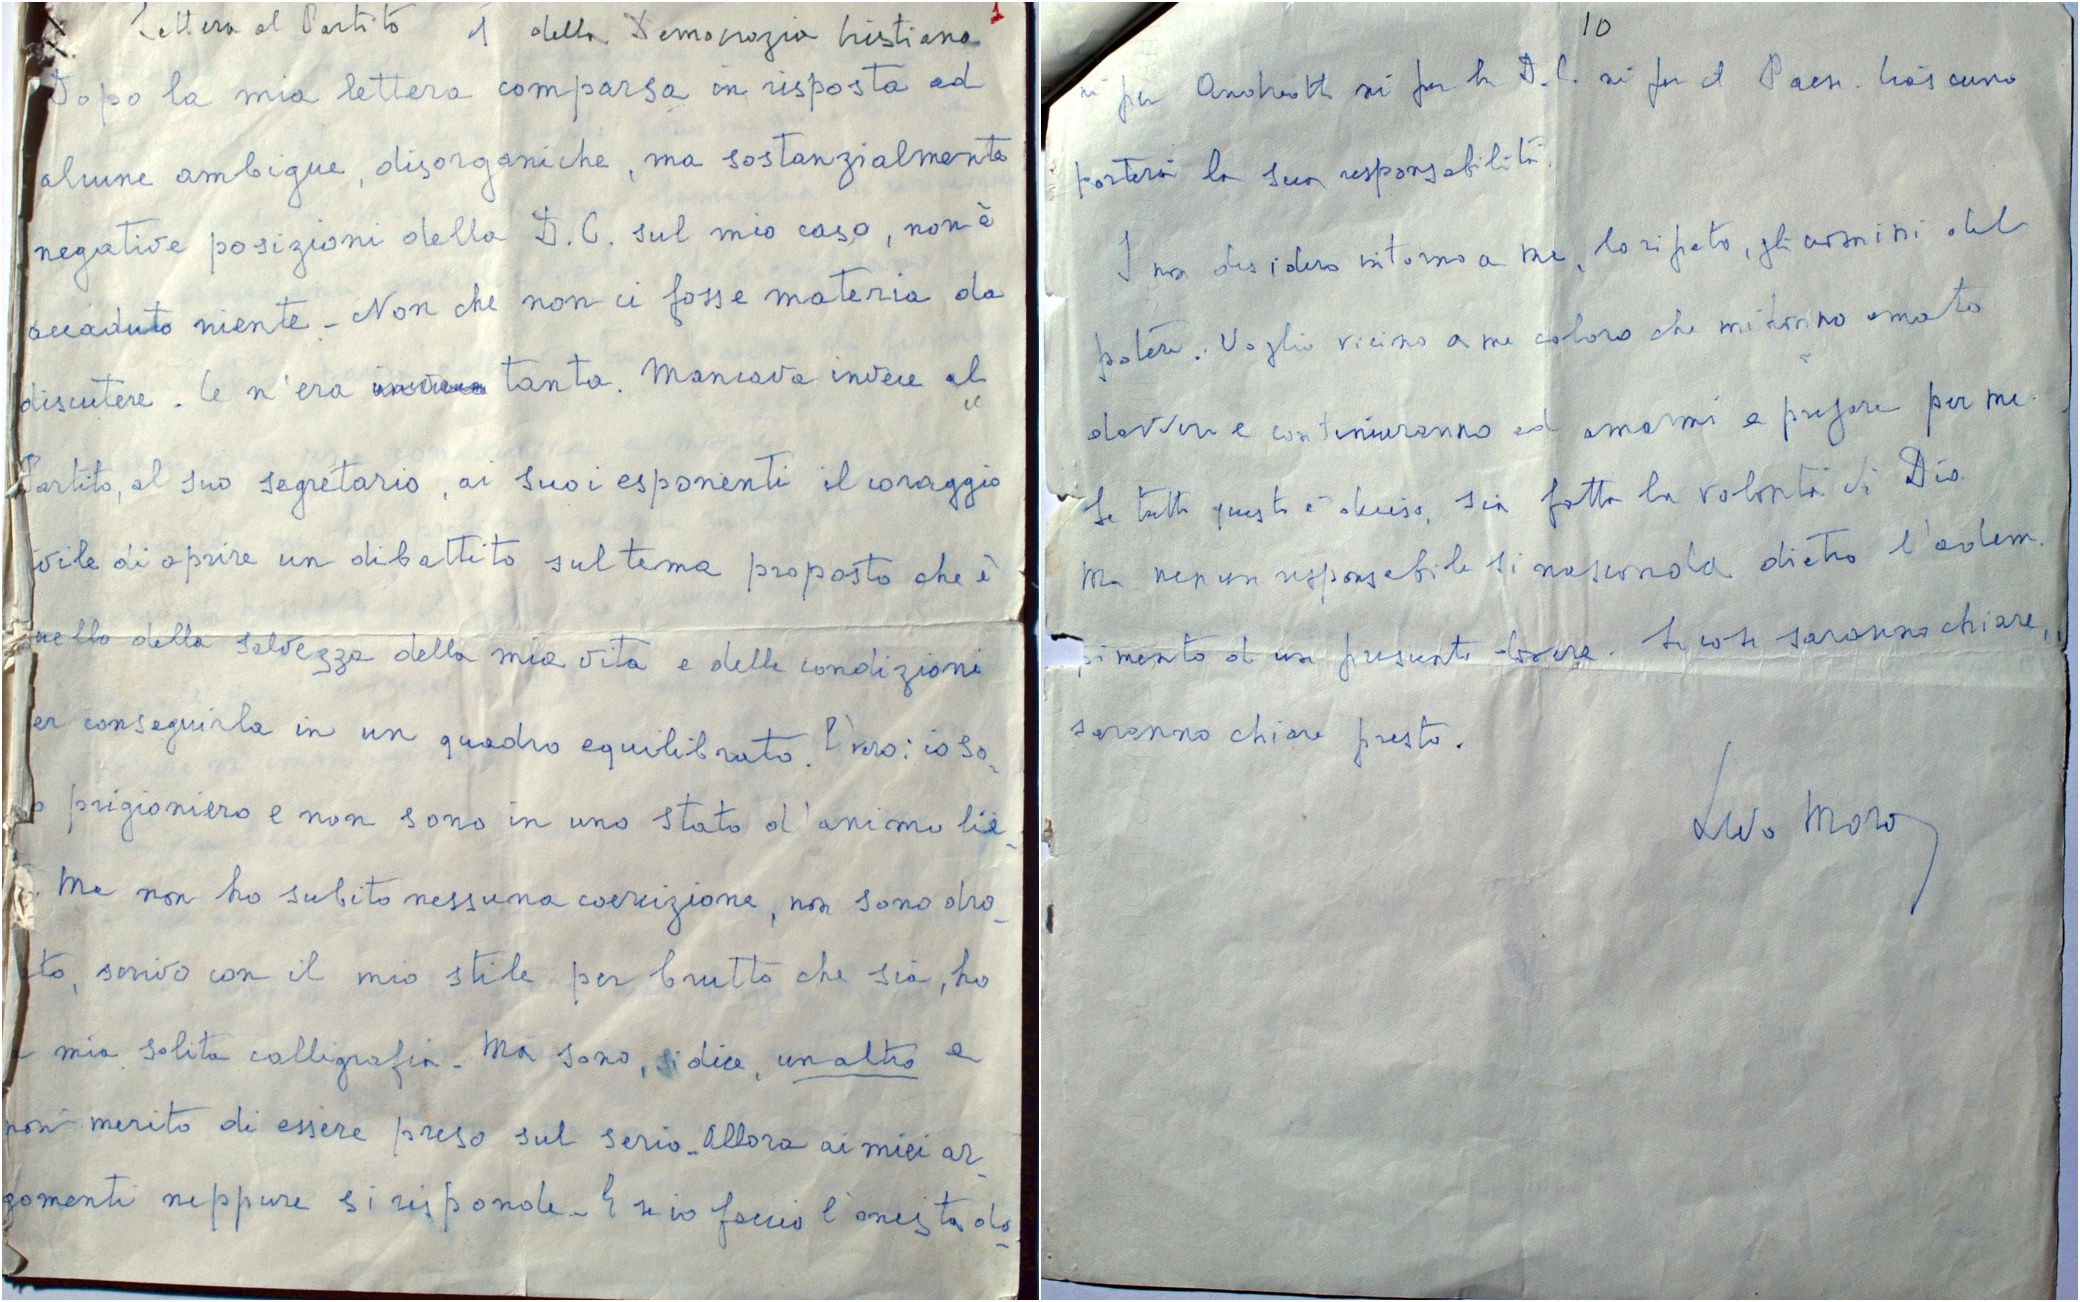 Lettera al Partito della Democrazia Cristiana
1
Dopo la mia lettera comparsa in risposta ad
alcune ambigue, disorganiche, ma sostanzialmente
negative posizioni della D.C. sul mio caso, non è
accaduto niente - Non che non ci fosse materia da
discutere. Ce n'era tanta. Mancava invece al
Partito, al suo segretario, ai suoi esponenti il coraggio
ivile di aprire un dibattito sul tema proposto che è
uello della salvezza della mia vita e delle condizioni
er conseguirla in un quadro equilibrato. E' vero: io so-
o prigioniero e non sono in uno stato d'animo lie-
. Ma non ho subito nessuna coercizione, non sono dro-
to, scrivo con il mio stile per brutto che sia, ho
mia solita calligrafia - Ma sono, si dice, un altro e
non merito di essere preso sul serio - Allora ai miei ar-
gomenti neppure si risponde - E se io faccio l'onesta do-
10
ni per Andreotti ni per la D.C. ni per il Paese. Ciascuno
porterà la sua responsabilità.
I non desidero intorno a me, lo ripeto, gli uomini del
potere. Voglio vicino a me coloro che mi hanno amato
davvero e continueranno ad amarmi e pregare per me.
Se tutto questo è deciso, sia fatta la volontà di Dio.
Ma nessun responsabile si nasconda dietro l'adem-
pimento di un presunto dovere. Le cose saranno chiare,
saranno chiare presto.
Aldo Moro